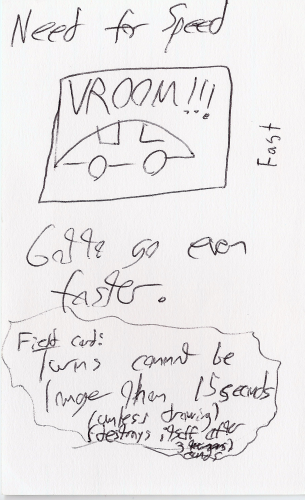 Need for Speed
VROOM!!!
Fast
Gotta go even
faster.
Field card:
Turns cannot be
longer than 15 seconds
(unless drawing)
(destroys itself after
3